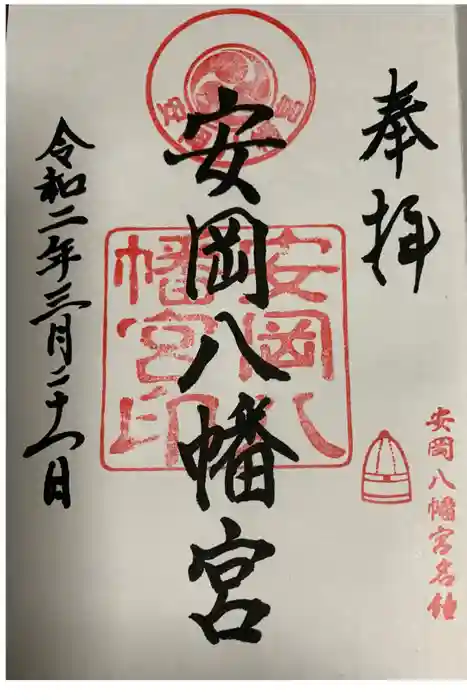 奉拝
安岡八幡宮
令和二年三月二十八日
安岡八
幡宮印
安岡八幡宮名鐘